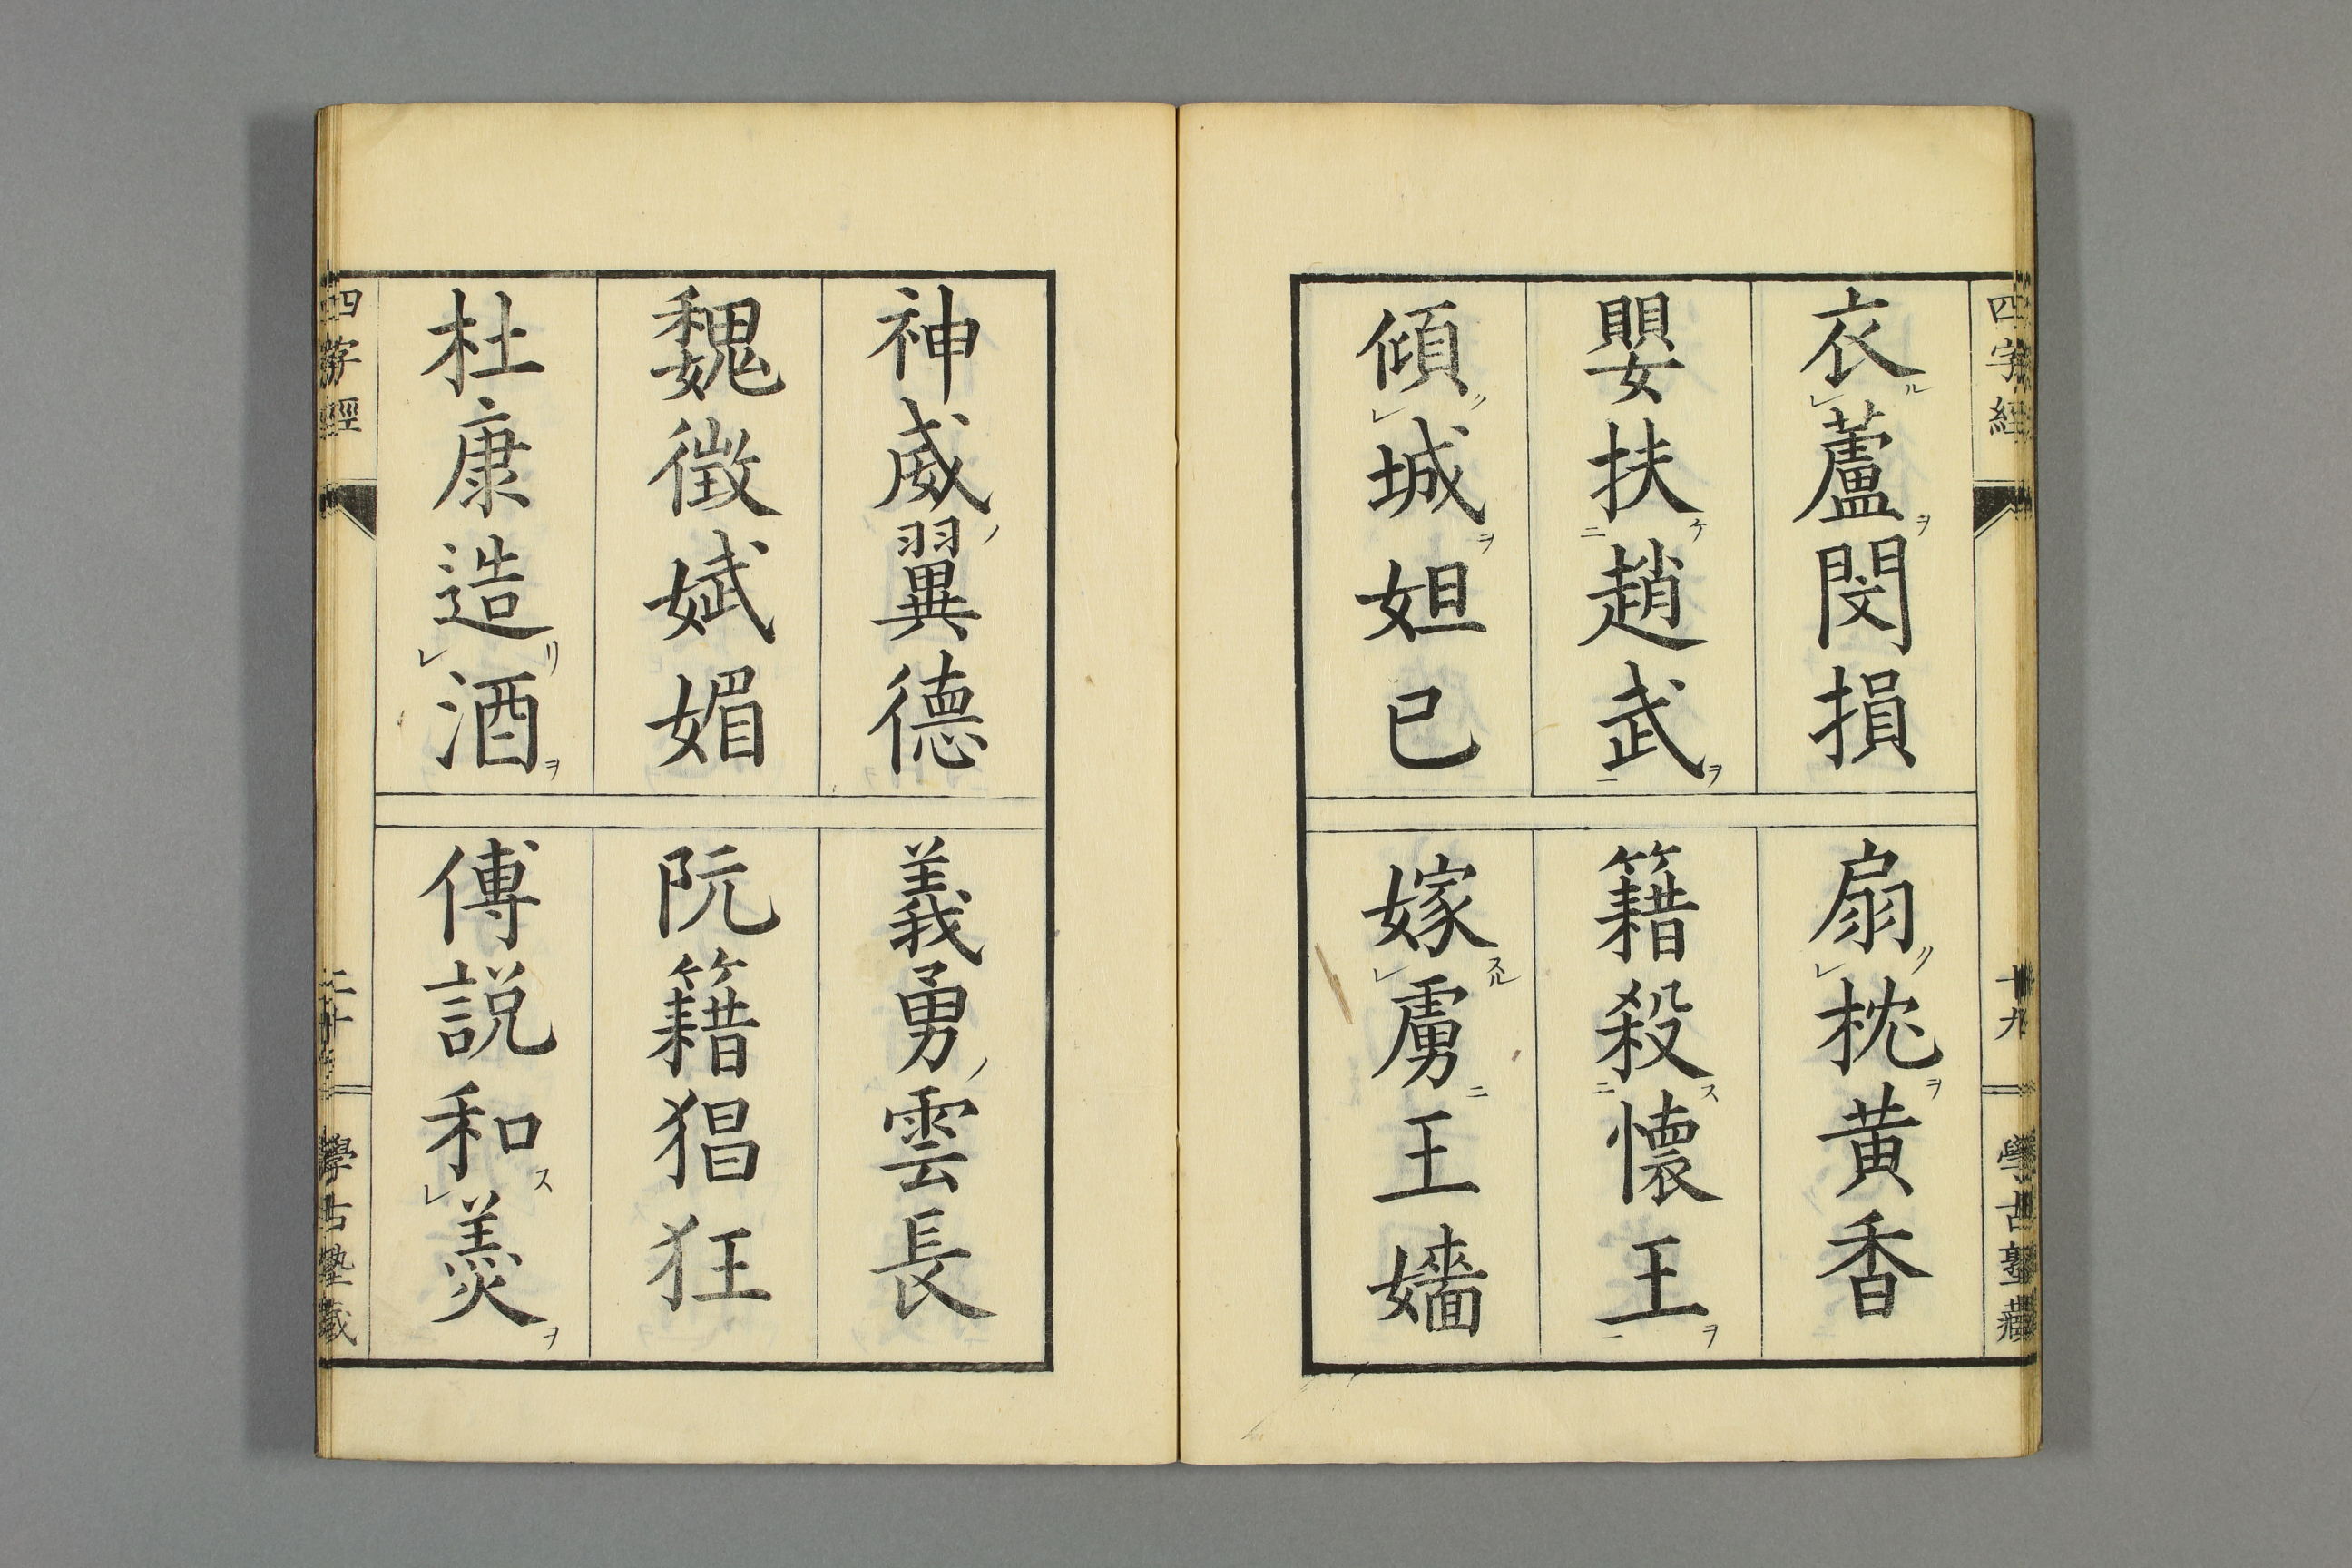 四字經
十九
學古塾藏
衣ル㆑蘆ヲ閔損
扇リ㆑枕ヲ黄香
嬰扶ケ㆓趙武ヲ㆒
籍殺ス㆓懐王ヲ㆒
傾リ㆑城ヲ妲己
嫁スル㆑虜ニ王嬙
神威ノ翼德
義勇ノ雲長
魏徵娬媚
阮籍猖狂
杜康造リ㆑酒ヲ
傅説和ス㆑羹ヲ
四字經
二十
學古塾藏